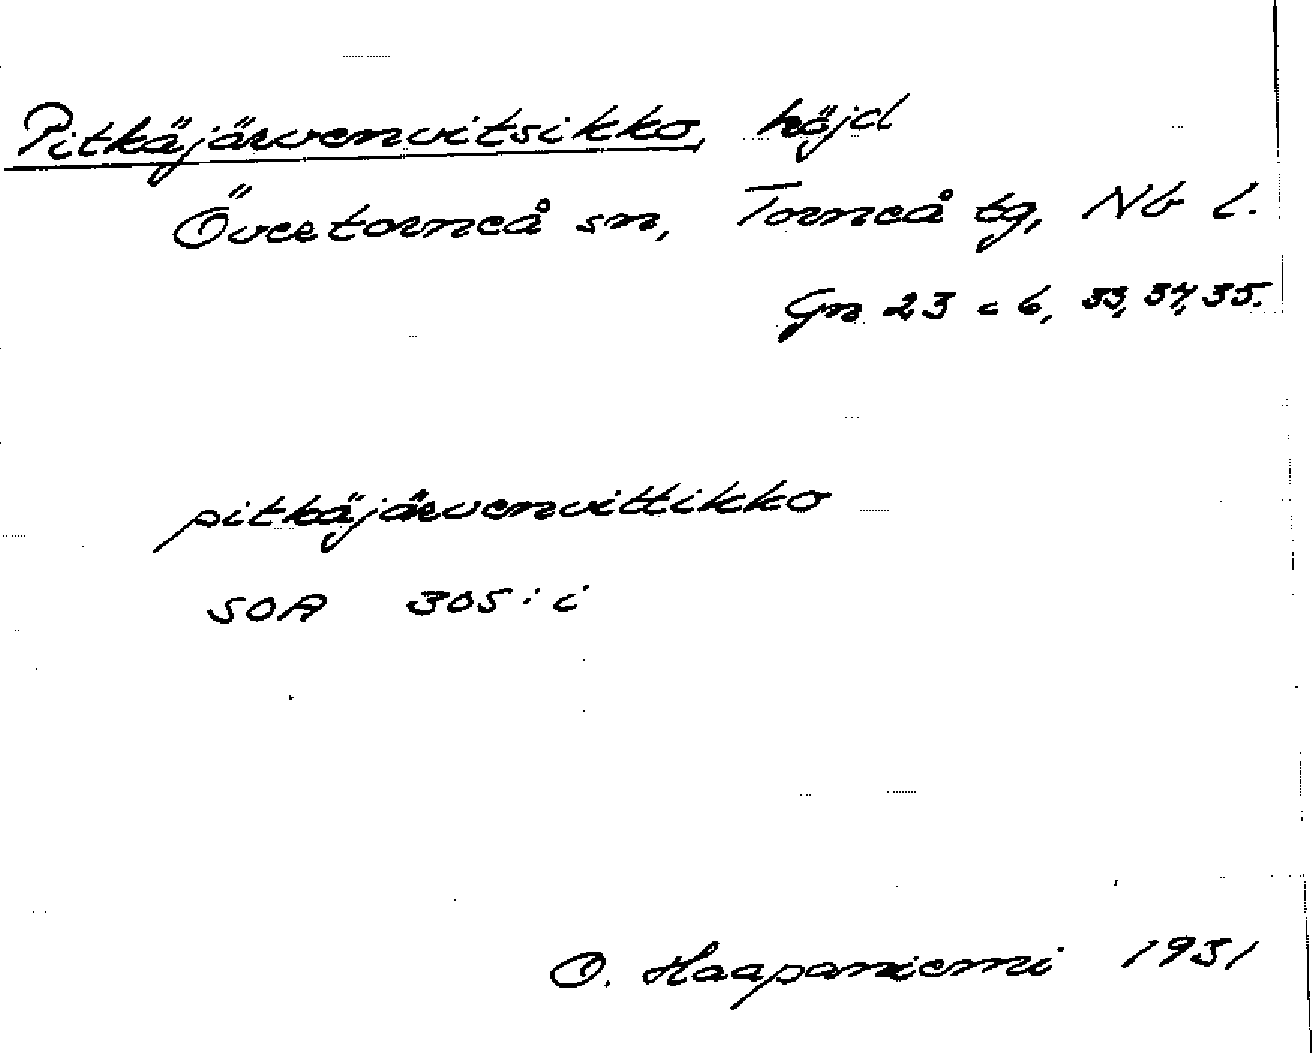 Pitkäjärvenvitsikko, höjd
Övertorneå sn, Torneå tg, Nb l.
Gn 23 c 6, 33, 37, 35.
pitkäjärvenvittikko
SOA 305: i
O. Haapaniemi 1931